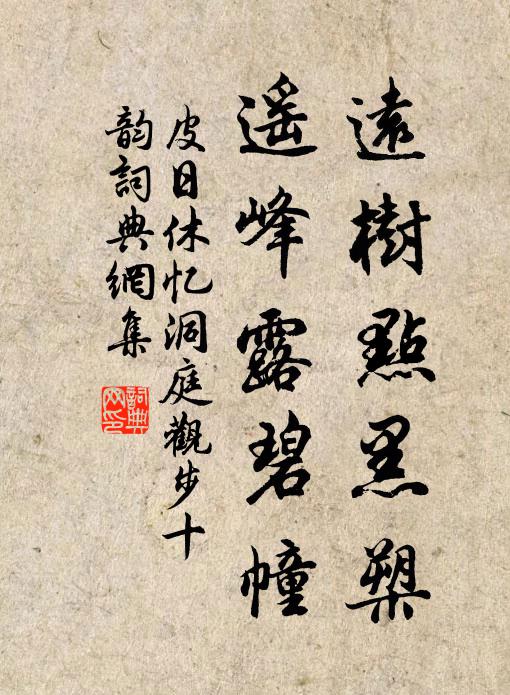 遠樹點黑槊
遙峰露碧幢
皮日休忆洞庭觀步十
韵詞典網集
詞典
网印